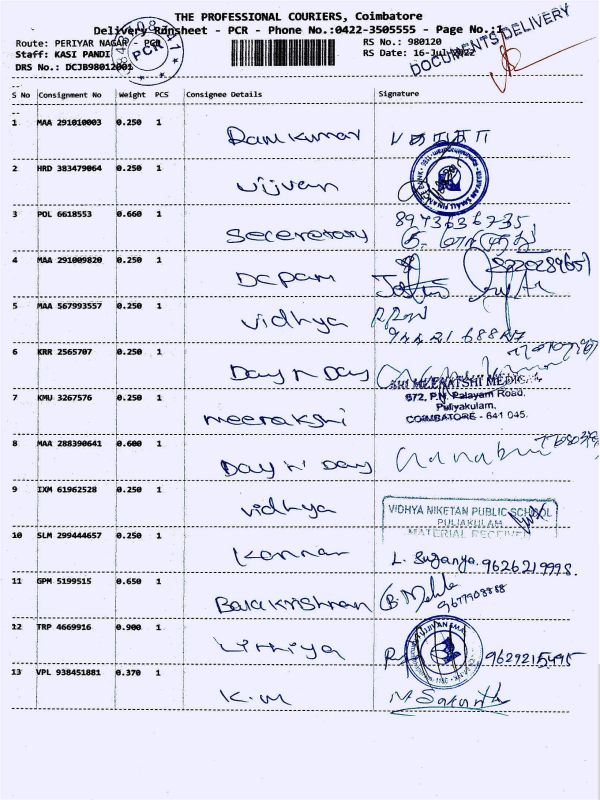 THE PROFESSIONAL COURIERS, Coimbatore
Delivery Runsheet - PCR - Phone No.:0422-3505555 - Page No.:1
Route: PERIYAR NAGAR - PCR
RS No.: 980120
Staff: KASI PANDI
RS Date: 16-Jul-2022
DRS No.: DCJB98012001
DOCUMENTS DELIVERY
PCR
S No Consignment No Weight PCS Consignee Details Signature
1 MAA 291010003 0.250 1 Ram kumar
2 HRD 383479064 0.250 1 Ujjivan
3 POL 6618553 0.660 1 Seceretary 8943636735
4 MAA 291009820 0.250 1 Dapam
5 MAA 567993557 0.250 1 Vidhya
6 KRR 2565707 0.250 1 Day n Day
7 KMU 3267576 0.250 1 meenakshi
SRI MEENATSHI MEDICAL
672, P.N. Palayam Road,
Puliyakulam,
COIMBATORE - 641 045.
8 MAA 288390641 0.600 1 Day n' Day
9 IXM 61962528 0.250 1 Vidhya
VIDHYA NIKETAN PUBLIC SCHOOL
PULIAKULAM
MATERIAL RECEIVED
10 SLM 299444657 0.250 1 Kannan L. Suganya. 9626219998.
11 GPM 5199515 0.650 1 Balakrishnan
12 TRP 4669916 0.900 1 9629215495
13 VPL 938451881 0.370 1 K.M